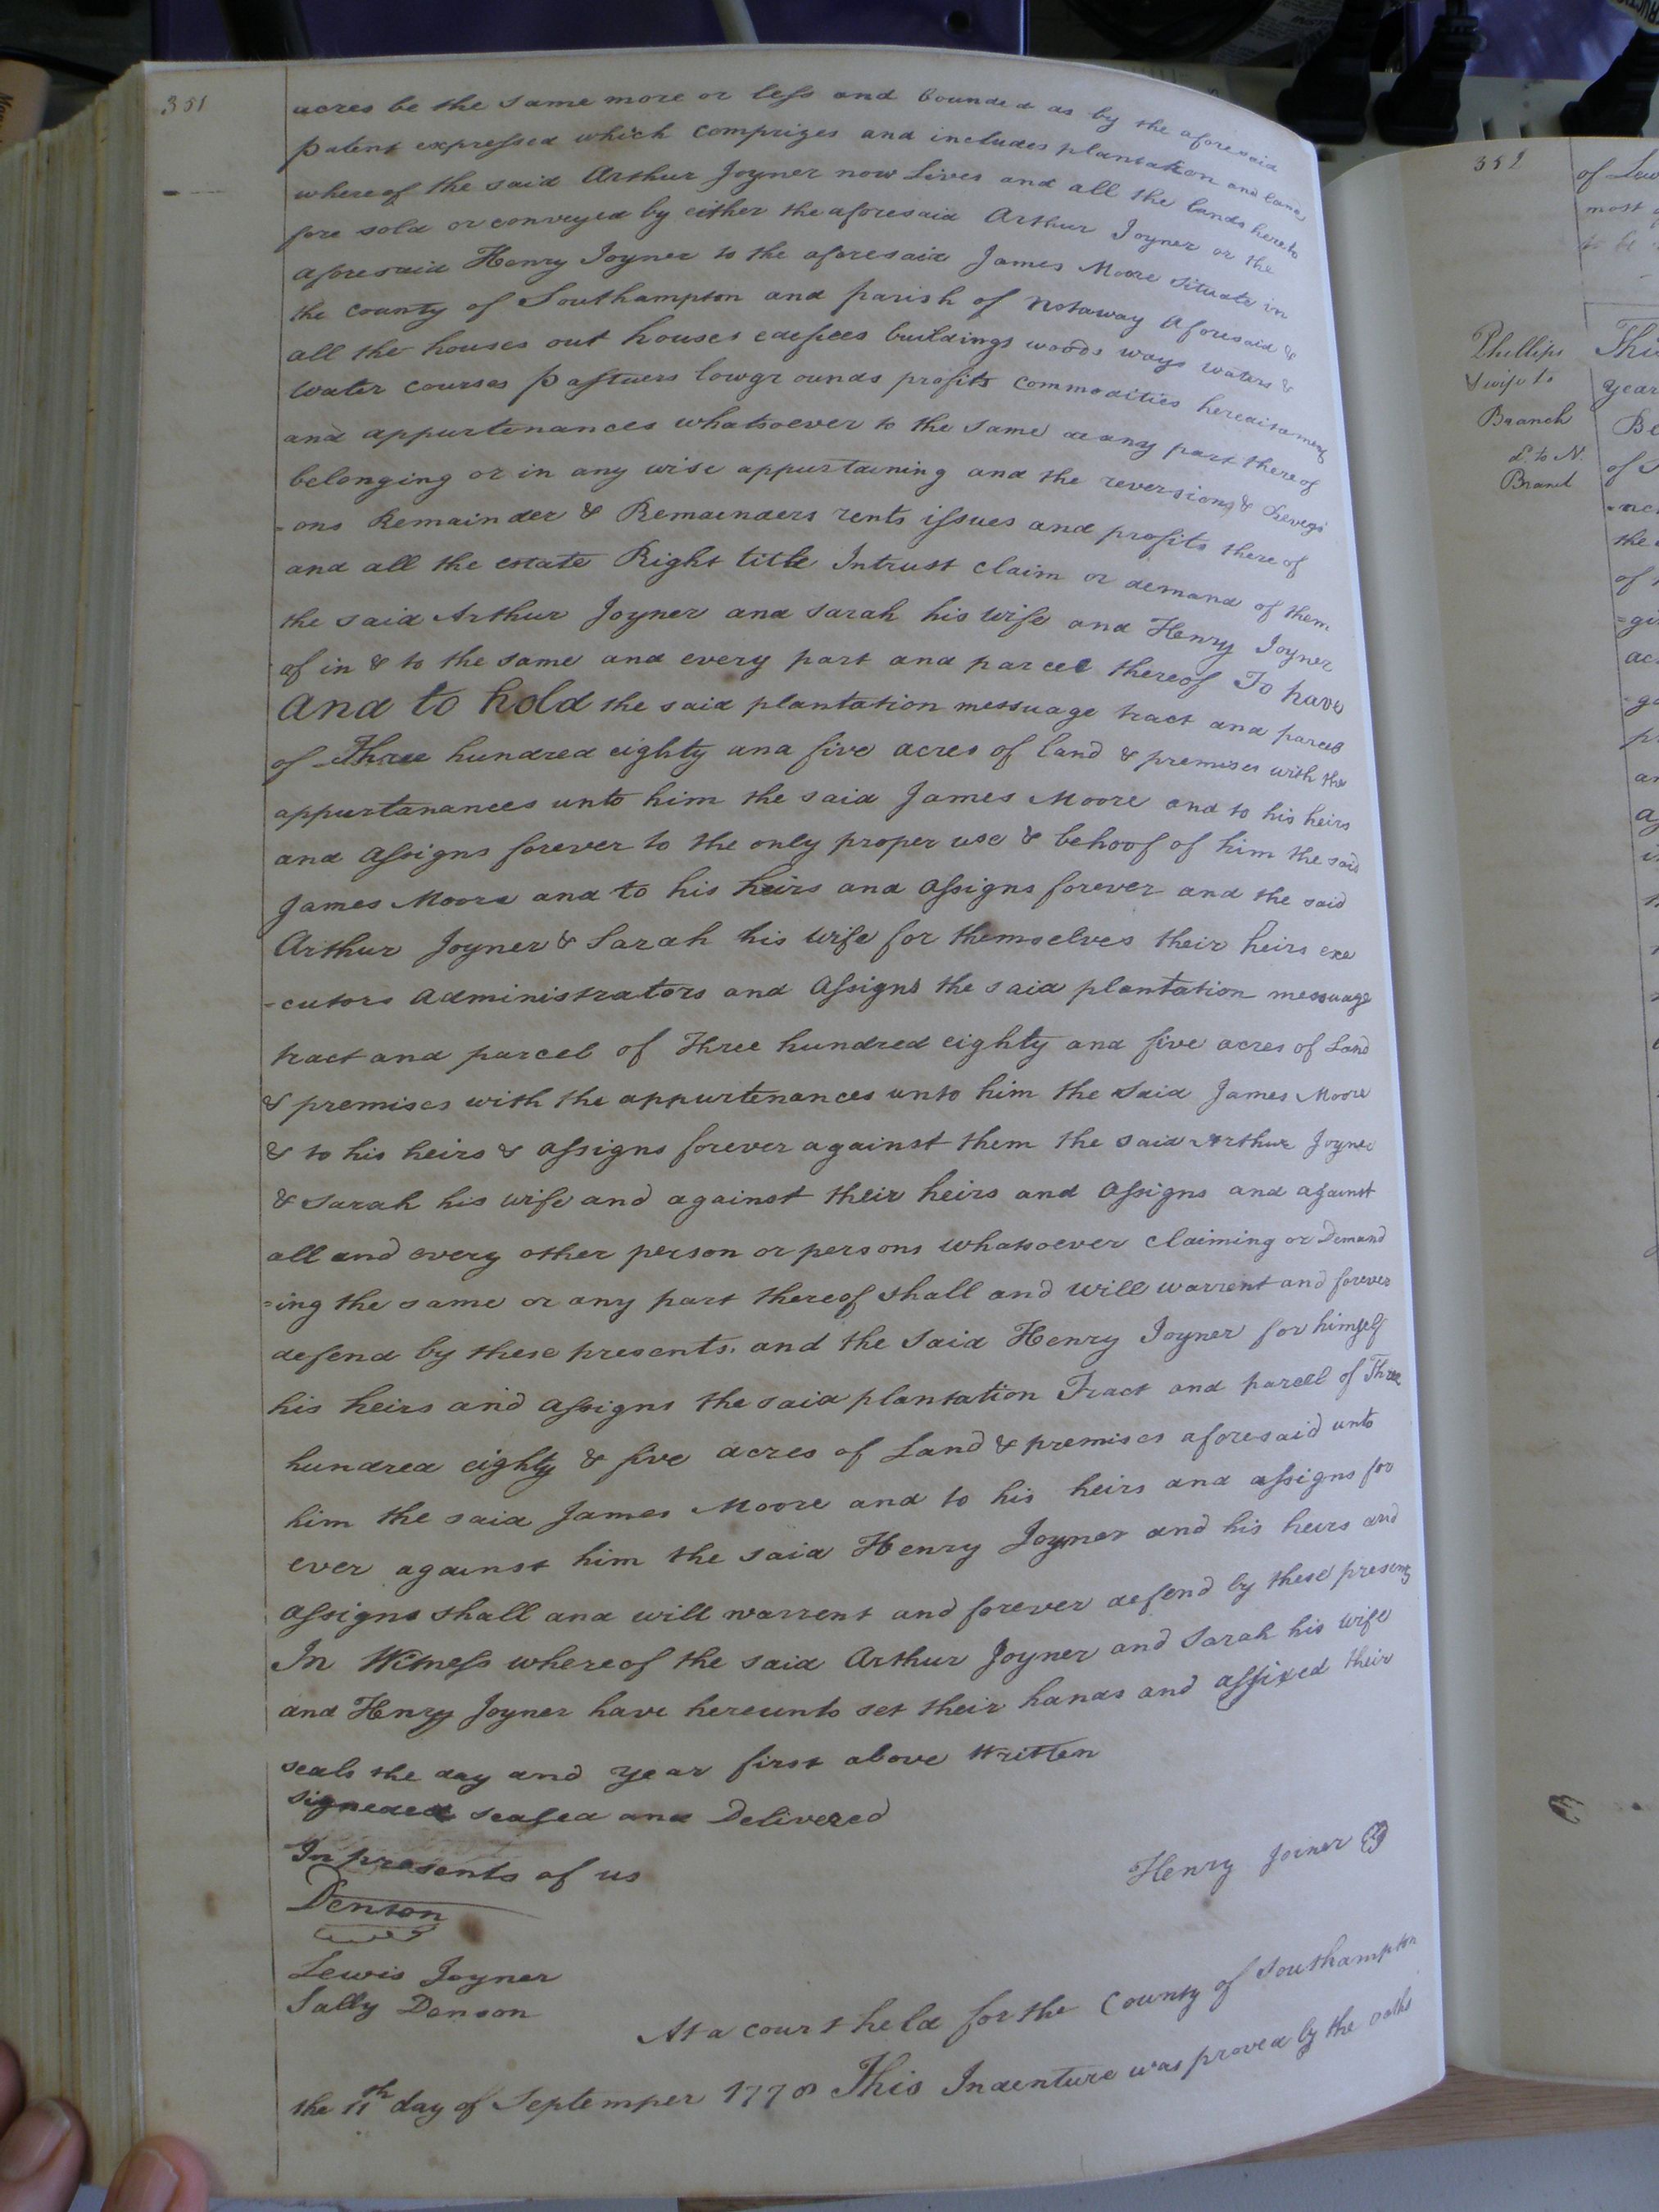 351
acres be the same more or less and bounded as by the aforesaid
patent expressed which comprizes and includes plantation and land
whereof the said Arthur Joyner now Lives and all the lands hereto
fore sold or conveyed by either the aforesaid Arthur Joyner or the
aforesaid Henry Joyner to the aforesaid James Moore Situate in
the county of Southampton and parish of Notaway aforesaid &
all the houses out houses edefices buildings woods ways waters &
water courses pastuers lowgrounds profits commodities hereditaments
and appurtenances whatsoever to the same or any part thereof
belonging or in any wise appurtaining and the reversions &
=ons Remainder & Remaenders rents issues and profits there of
and all the estate Right title Intrust claim or demand of them
the said Arthur Joyner and Sarah his wife and Henry Joyner
of in & to the same and every part and parcel thereof To have
and to hold the said plantation messuage tract and parcel
of Three hundred eighty and five acres of land & premises with the
appurtanances unto him the said James Moore and to his heirs
and assigns forever to the only proper use & behoof of him the said
James Moore and to his heirs and assigns forever and the said
Arthur Joyner & Sarah his wife for themselves their heirs exe
=cutors administrators and assigns the said plantation messuage
tract and parcel of Three hundred eighty and five acres of Land
& premises with the appurtenances unto him the said James Moore
& to his heirs & assigns forever against them the said Arthur Joyner
& Sarah his wife and against their heirs and assigns and against
all and every other person or persons whatsoever claiming or Demand
=ing the same or any part thereof shall and will warrent and forever
defend by these presents. and the said Henry Joyner for himself
his heirs and assigns the said plantation Tract and parcel of Three
hundred eighty & five acres of Land & premises aforesaid unto
him the said James Moore and to his heirs and assigns for
ever against him the said Henry Joyner and his heirs and
assigns shall and will warrent and forever defend by these presents
In Witness whereof the said Arthur Joyner and Sarah his wife
and Henry Joyner have hereunto set their hands and affixed their
seals the day and year first above written
signeded sealed and Delivered
In presents of us
Henry Joiner
Denson
Lewis Joyner
Sally Denson
At a court held for the County of Southampton
the 11th day of Septemper 1778 This Indenture was proved by the oaths
352
of
most
to be
Phillips
& wife to
Branch
D. to N.
Year
of
the
of